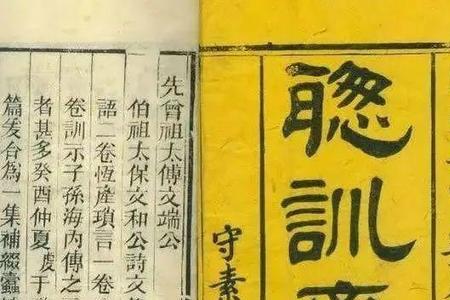 聦訓
守素
先曾祖太傅文端公
伯祖太保文和公詩文
語二卷恆產瑣言一卷
卷訓示子孫海內傳之
者甚多癸酉仲夏虔于
篇爰合為一集補綴蠹